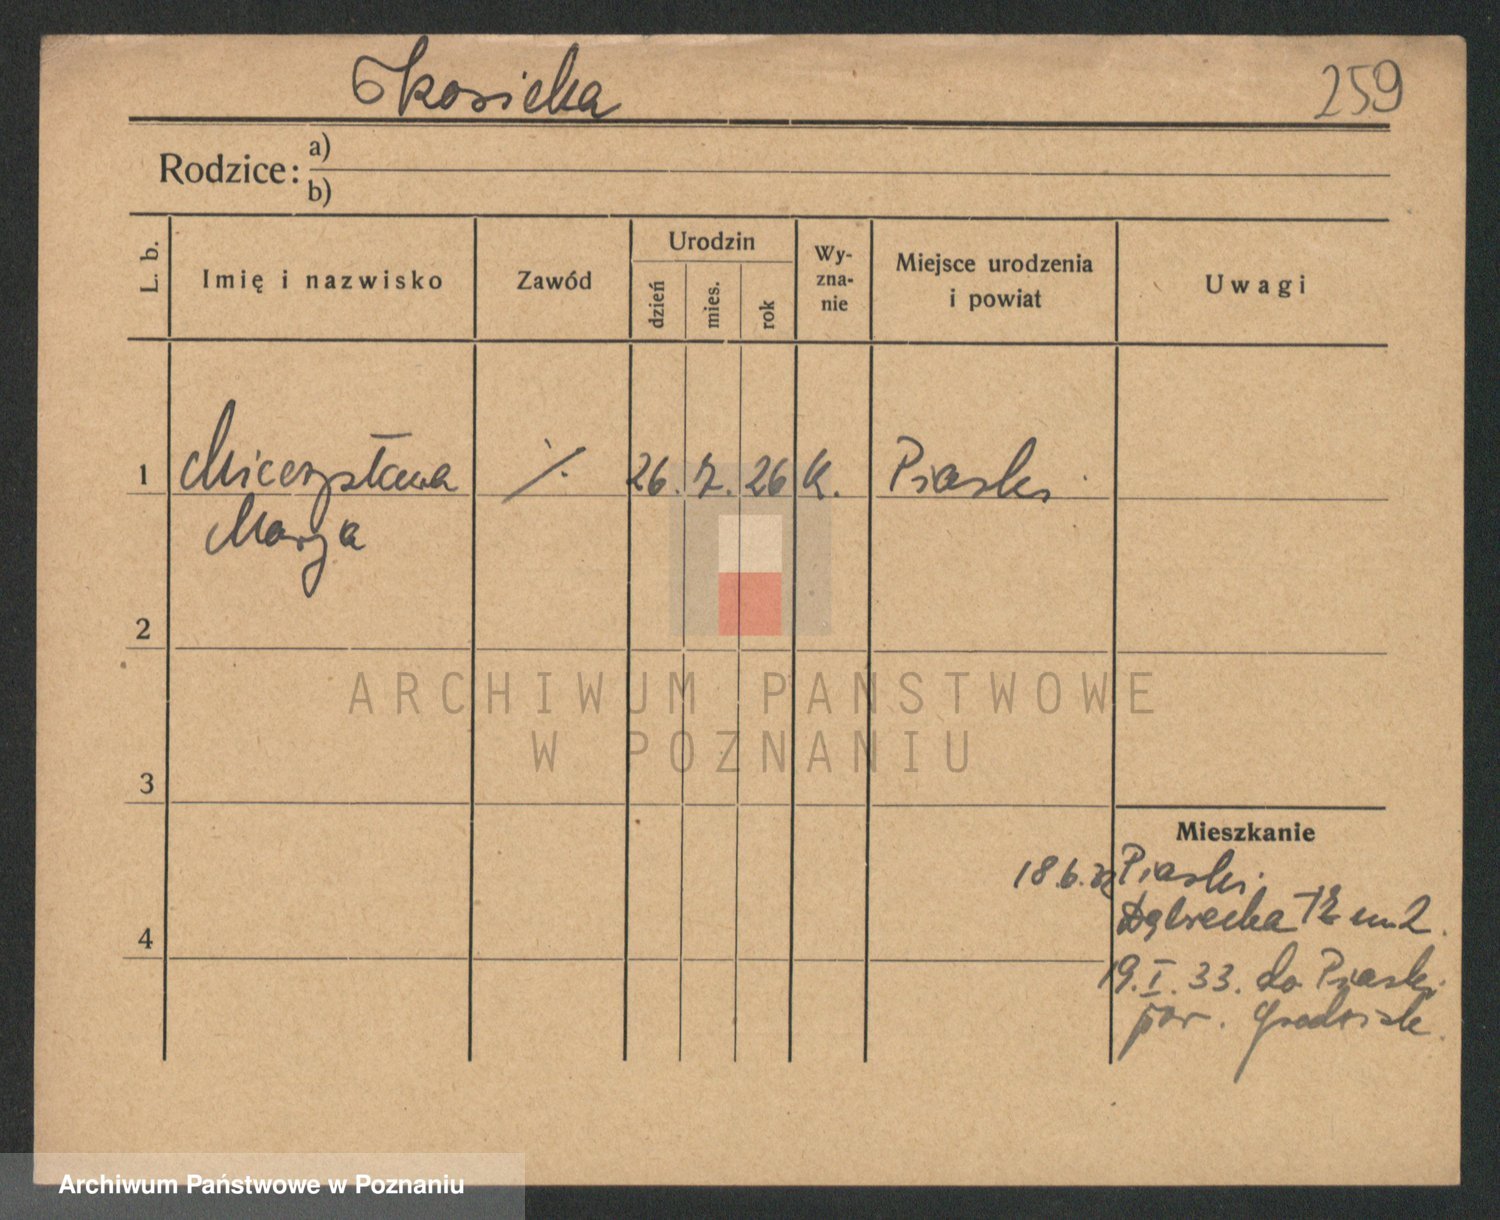 Skosicka
259
Rodzice:
a)
b)
L. b.
Imię i nazwisko
Zawód
Urodzin
dzień
mies.
rok
Wy-
zna-
nie
Miejsce urodzenia
i powiat
Uwagi
1 Mieczysława ·/. 26. 7. 26 K. Piaski
Marja
2
3
4
Mieszkanie
18.6. Piaski.
12 m 2.
19. I. 33. do Piaski
pow. Grodzisk
ARCHIWUM PAŃSTWOWE
W POZNANIU
Archiwum Państwowe w Poznaniu